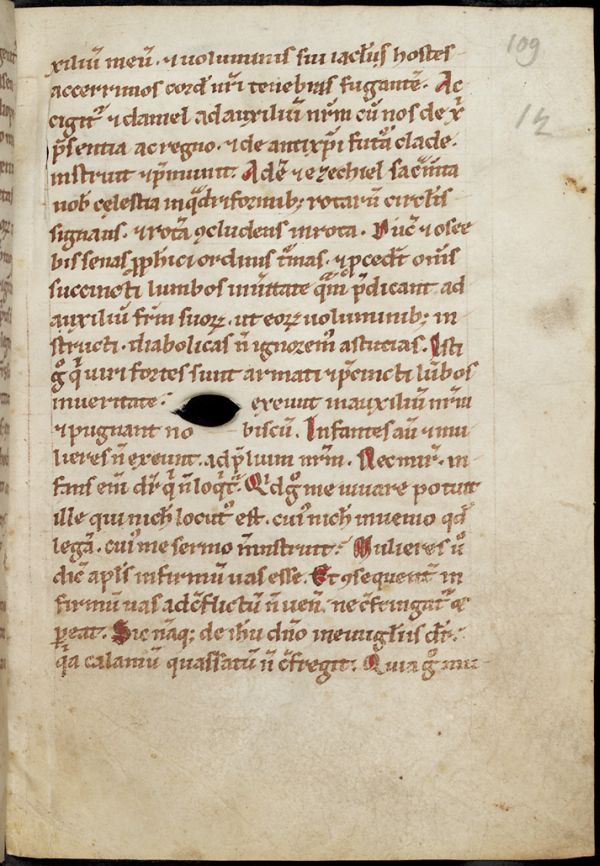 109
12
xiliū meū. ⁊ uoluminis sui iacl̄is hostes
accerrimos cord ur̄i tenebras fugantē. Ac
cigit᷑ ⁊ daniel ad auxiliū nr̄m cū nos de xp̄i
p̄sentia ac regno. ⁊ de antixp̄i futa clade.
instruit ⁊ p̄munit. Adē ⁊ ezechiel sac̄mta
uob celestia inqᵈriformib; rotarū circlis
signans. ⁊ rotā ꝯcludens in rota. Nuc̄ ⁊ osee
bis senas ꝓphici ordinis t̄mas. ⁊ ꝓcedt̄ om̄s
succincti lumbos iuīttate qᵃm p̄dicant ad
auxiliū frm̄ suoꝝ. ut eoꝝ uoluminib; in
structi. diabolicas n̄ ignorem᷒ astucias. Isti
gͦ qⁱ uiri fortes sunt armati ⁊ p̄cincti lūbos
in ueritate. exeunt in auxiliū nr̄m
⁊ pugnant no biscū. Infantes aū ⁊ mu
lieres n̄ exeunt. ad p̄lium nr̄m. Nec mir̄. in
fans em̄ dr̄ qⁱ n̄ loqⁱt᷑. Qⁱd gͦ me iuuare potuit
ille qui nich̄ locut᷒ est. cui᷒ nich̄ inuenio qd̄
legā. cui᷒ me sermo n̄ instruit. Mulieres ū
dic̄ apl̄s infirmū uas esse. Et ꝯsequent̄ in
firmū uas ad c̄flictū n̄ uen̄. ne c̄fringat᷑ ⁊
ꝑeat. Sic nāq; de ih̄u dn̄o in euuḡliis dr̄.
qᵃ calamū quassatū n̄ c̄fregit. Quia gͦ mu